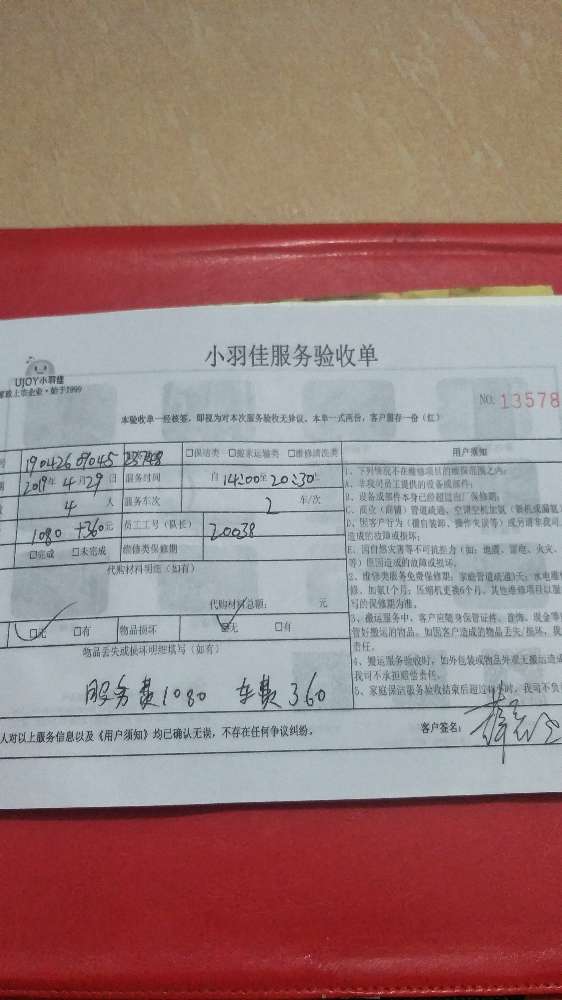 UJOY小羽佳
家政上市企业·始于1999
小羽佳服务验收单
NO. 13578
本验收单一经核签，即视为对本次服务验收无异议。本单一式两份，客户留存一份（红）
号 190426 09045 □保洁类 □搬家运输类 □维修清洗类 用户须知
期 2019年4月29日 服务时间 自 14:00至20:30
4 人 服务车次 2 车/次
1080 +360元 员工工号（队长） 20038
□完成 □未完成 维修类保修期
代购材料明细（如有）
代购材料总额： 元
□无 □有 物品损坏 □无 □有
物品丢失或损坏明细填写（如有）
服务费1080 车费360
1、下列情况不在维修项目的维保范围之内：
A、非我司员工提供的设备或部件；
B、设备或部件本身已经超过出厂保修期；
C、商业（商铺）管道疏通、空调空机加氨（新机或漏氨
D、因客户行为（擅自装卸、操作失误等）或另请非我司
造成的故障或损坏；
E、因自然灾害等不可抗拒力（如：地震、雷电、火灾、
等）原因造成的故障或损坏。
2、维修类服务免费保修期：家庭管道疏通3天；水电维
修、加氨1个月；压缩机更换6个月，其他维修项目以服
写的保修期为准。
3、搬运服务中，客户应随身保管证件、首饰、现金等
管好搬运的物品。如因客户造成的物品丢失/损坏，我
责任。
4、搬运服务验收时，如外包装或物品外观无搬运造成
我司不承担赔偿责任。
5、家庭保洁服务验收结束后超过 小时，我司不负
人对以上服务信息以及《用户须知》均已确认无误，不存在任何争议纠纷。 客户签名：